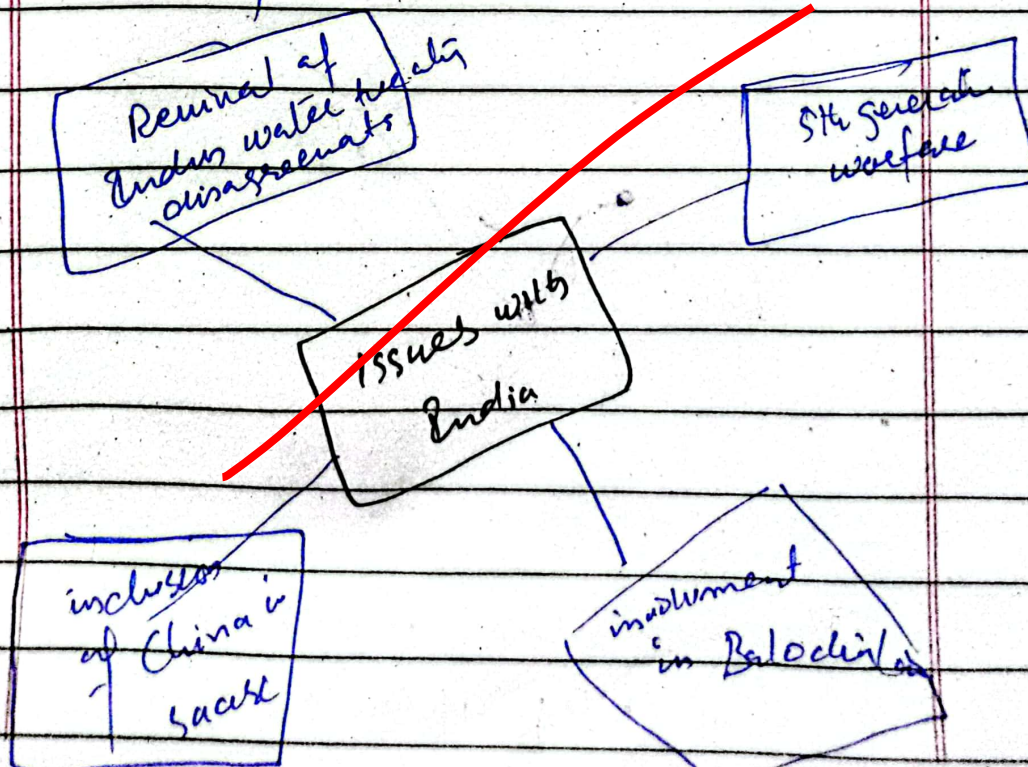 Revival of
Indus water treaty
disagreements
5th generation
warfare
issues with
India
inclusion
of China in
saarc
involvment
in Balochistan